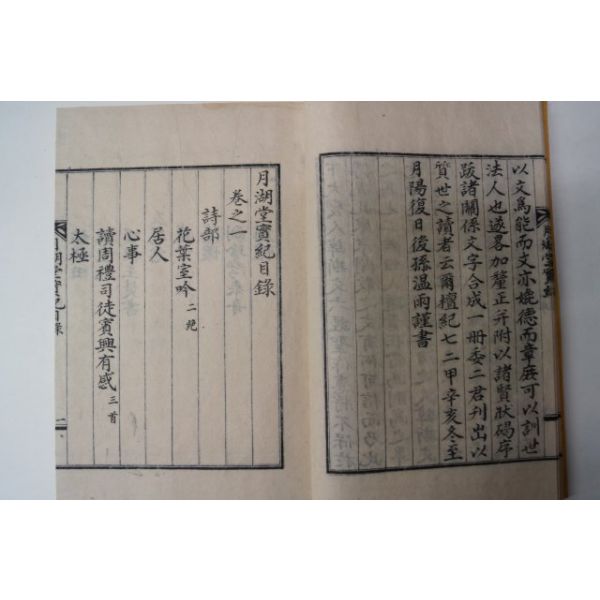 以文爲能而文亦媲德而章庶可以訓世
法人也遂畧加釐正并附以諸賢狀碣序
跋諸關係文字合成一册委二君刊出以
質世之讀者云爾檀紀七二甲辛亥冬至
月陽復日後孫温雨謹書
月湖堂實紀
月湖堂寶紀目錄
卷之一
詩部
花葉室吟 二絶
居人
心事
讀周禮司徒賓興有感 三首
太極
月湖堂寶紀目錄